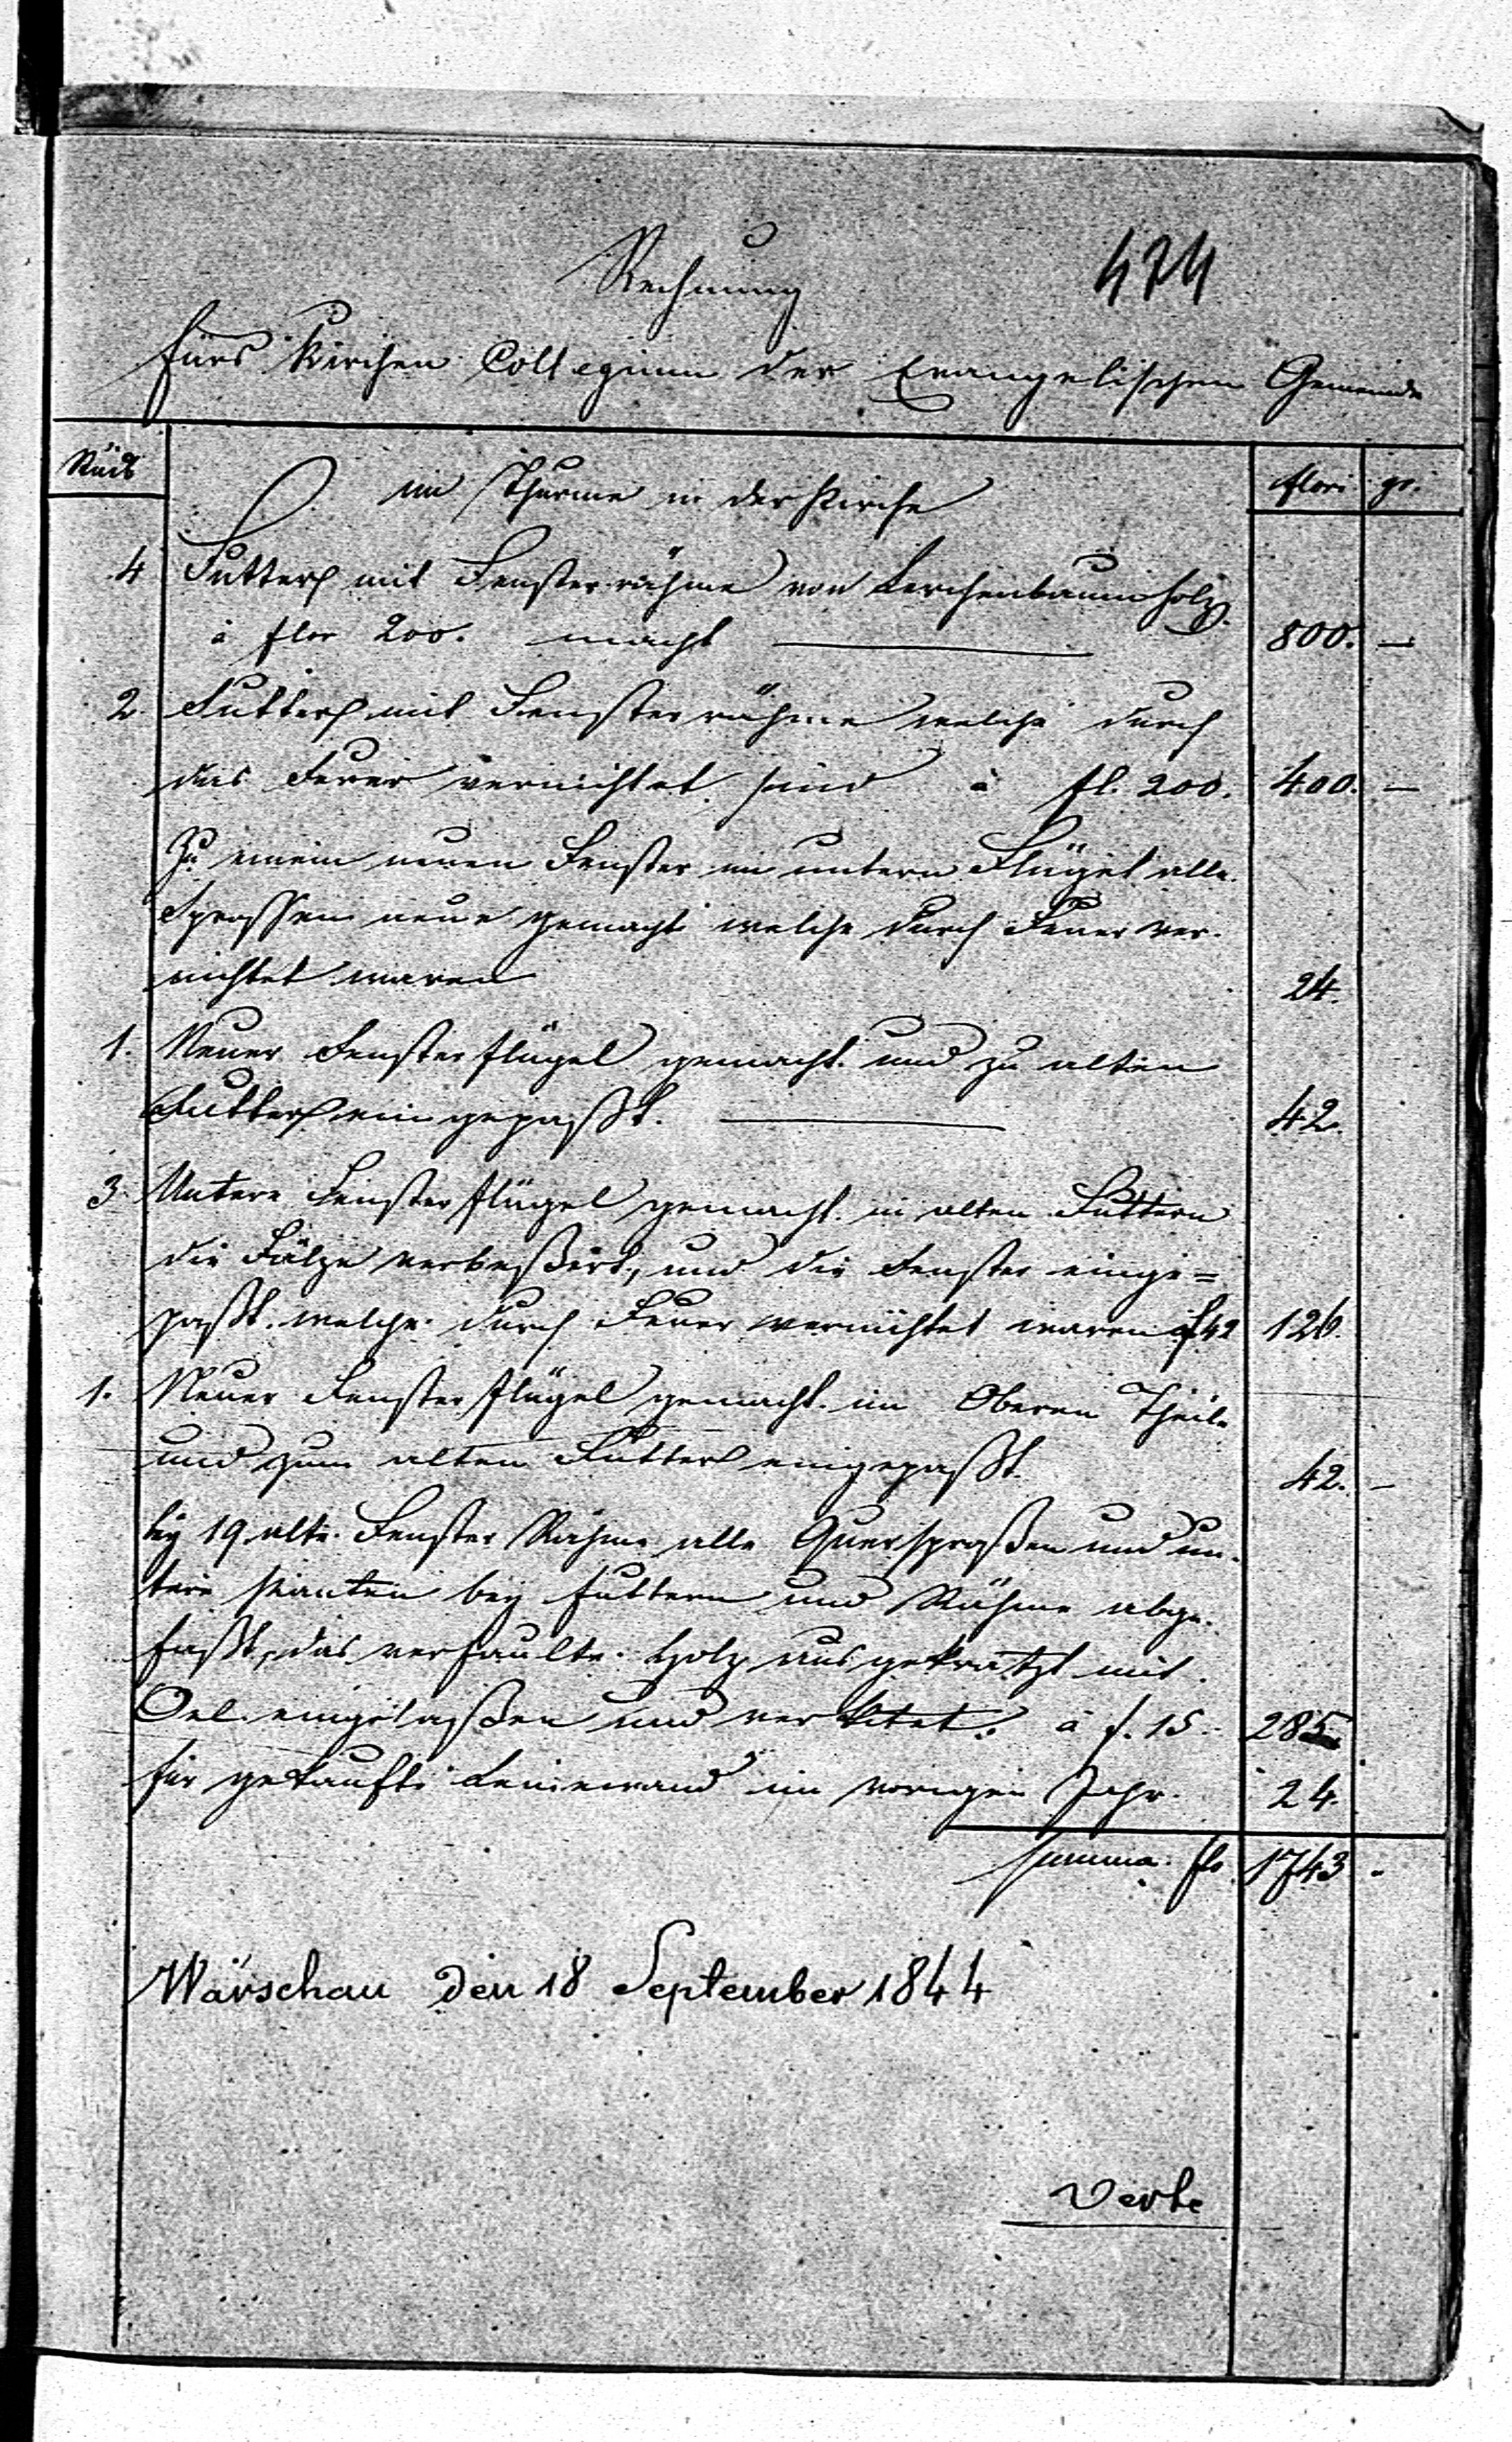 Rechnung 474
fürs Kirchen Collegium der Evangelischen Gemeinde
Stück
im Thurme in der Kirche flori gr.
4 Futter mit Fensterrähme von Lerchenbaumholz
à flor 200. macht 800. —
2. Futter mit Fensterrähme welche durch
das Feuer vernichtet sind à fl. 200. 400. —
Zu einem neuen Fenster im untern Flügel alle
Sprossen neue gemacht welche durch Feuer ver-
nichtet waren 24.
1. Neuer Fensterflügel gemacht und zu alten
Futter eingepaßt. 42.
3. Untere Fensterflügel gemacht in alten Futtern
die Fälze verbeßert, und die Fenster einge=
paßt welche durch Feuer vernichtet waren à f 42 126.
1. Neuer Fensterflügel gemacht im Oberen Theile
und zum alten Futter eingepaßt 42. -
bey 19 alte Fenster Rähme alle Quersproßen und un-
tere Kanten bey Futtern und Rähme abge-
faßt, das verfaulte Holz ausgekratzt mit
Oel eingelaßen und verkitet. à f. 15. 285.
für gekaufte Leinewand im vorigen Jahr. 24.
Summa flo. 1743 -
Warschau den 18 September 1844
Verte